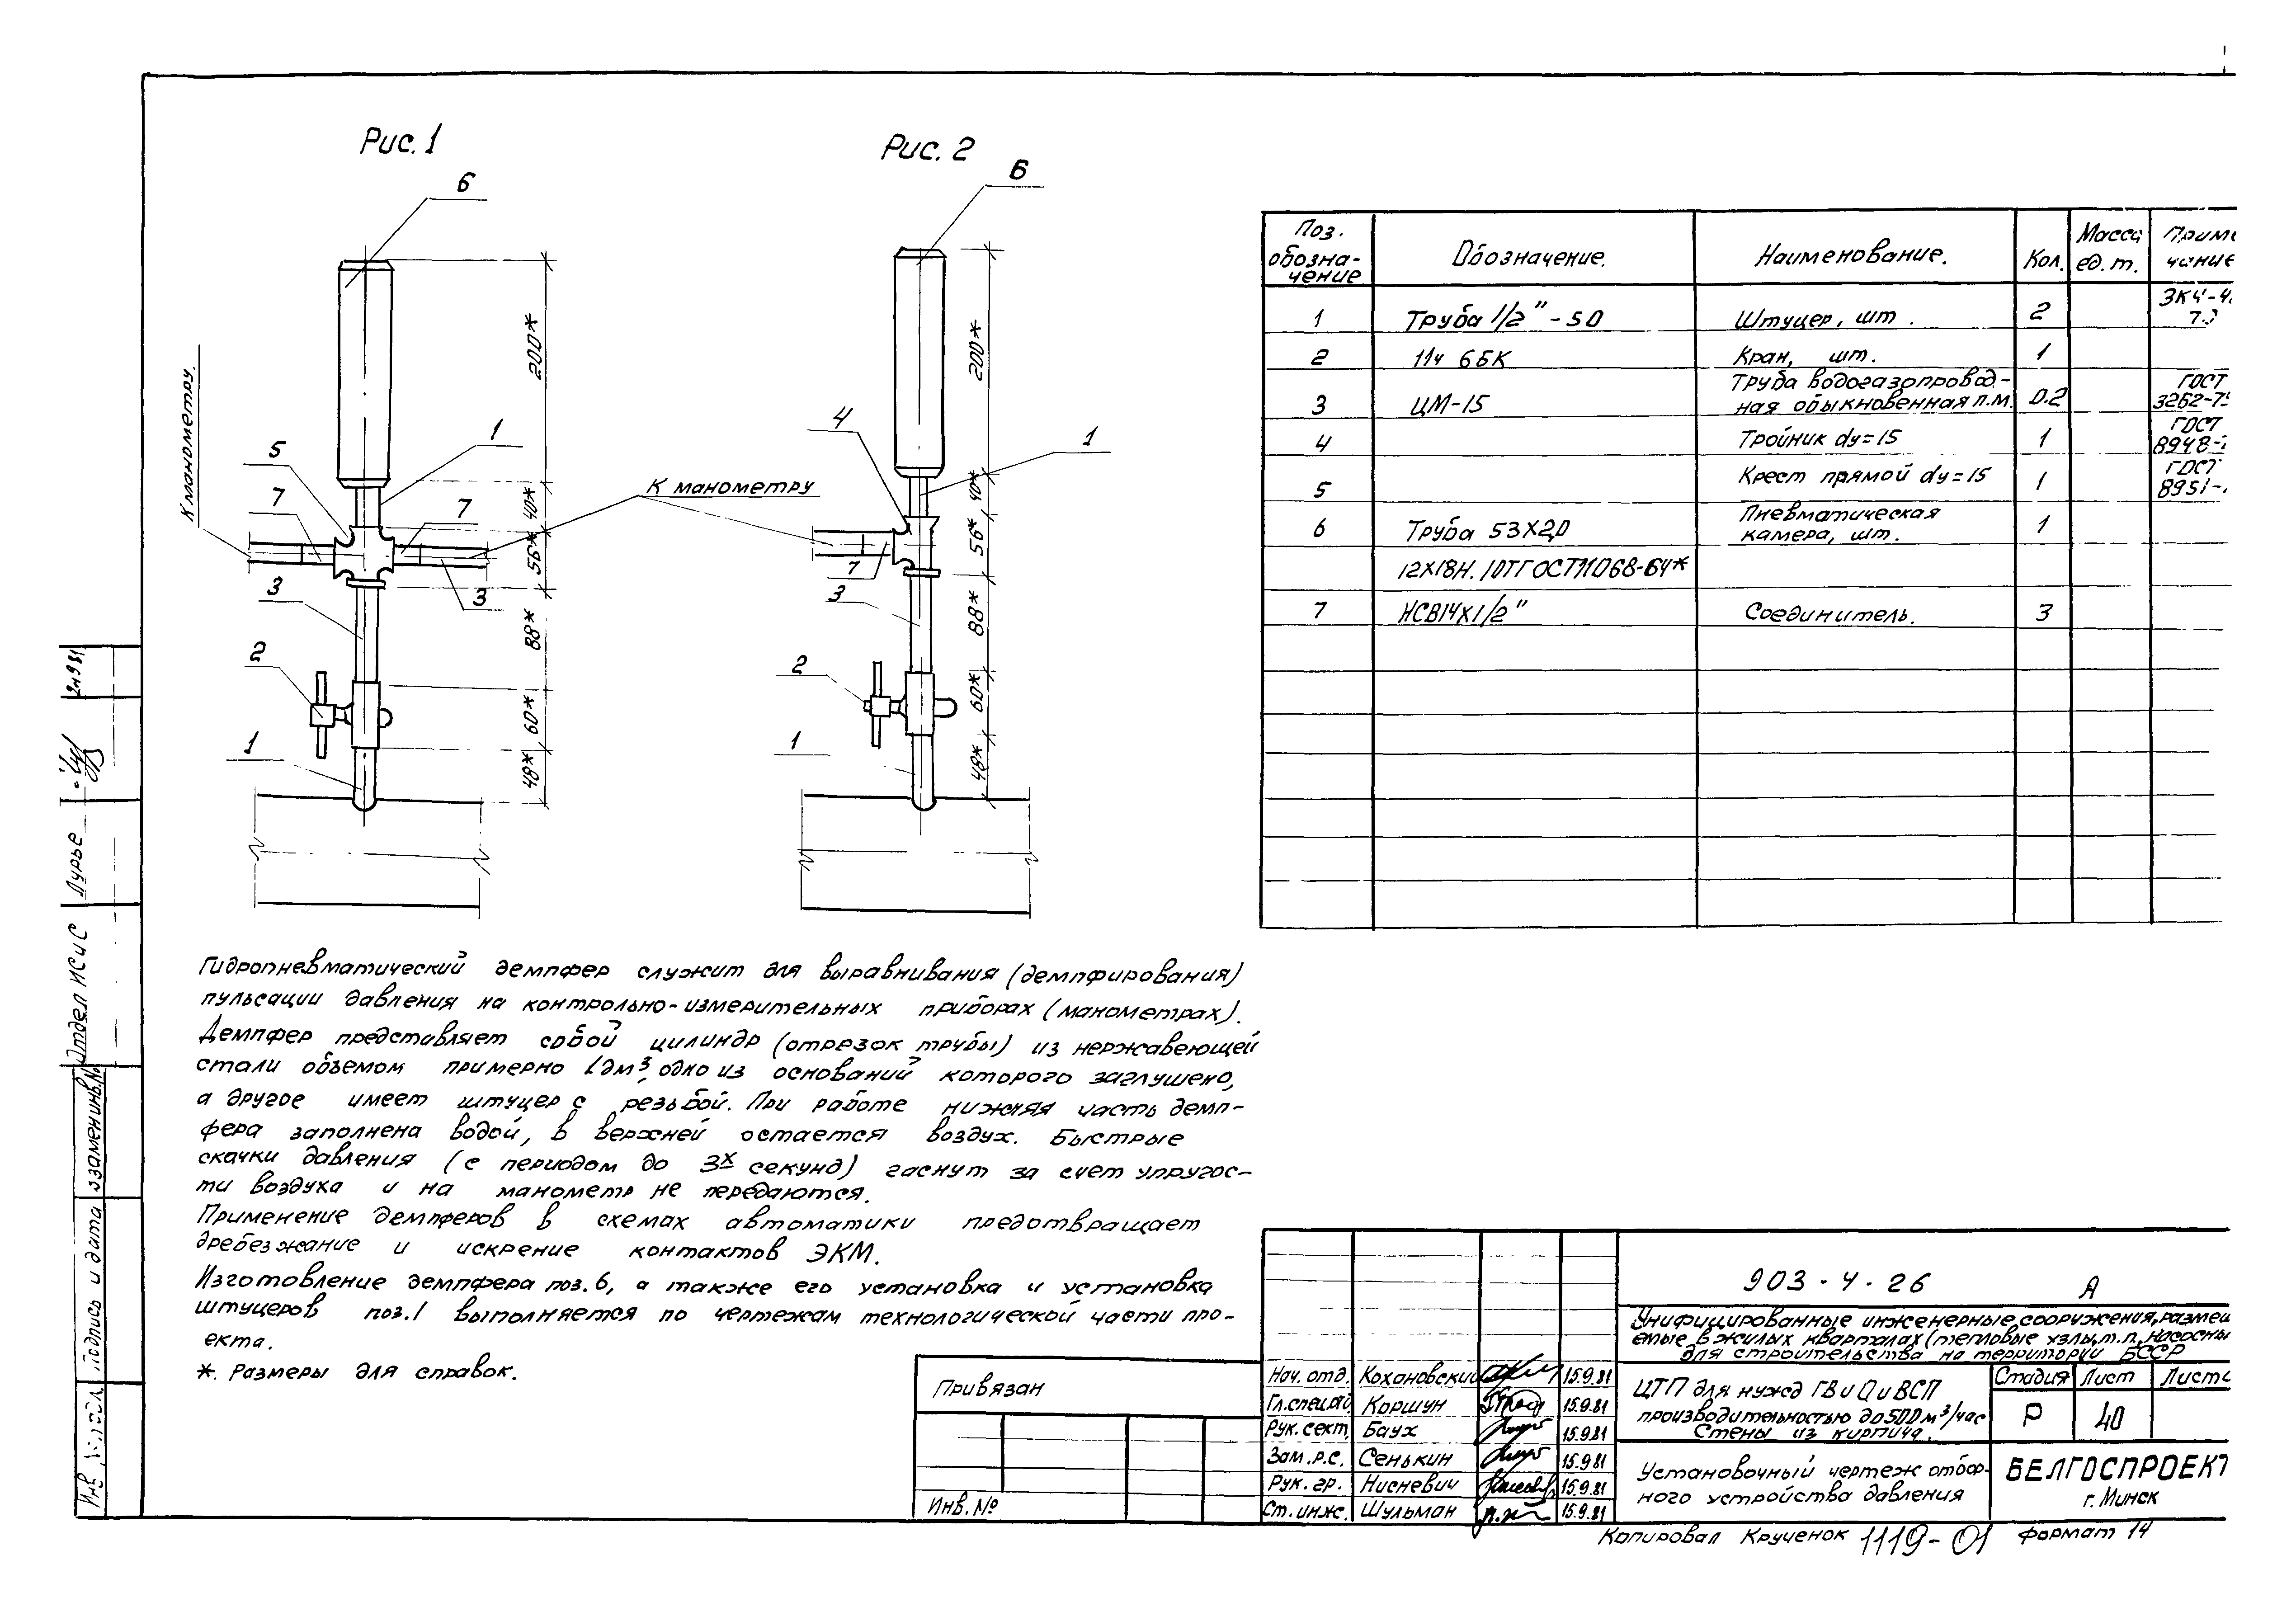 Рис. 1
6
200*
К манометру.
5
1
7
7
40*
56*
3
3
88*
2
60*
1
48*
К манометру
Рис. 2
6
200*
4
1
40*
56*
7
3
88*
2
60*
1
48*
Поз. обозна-чение Обозначение. Наименование. Кол. Масса ед. т. Приме чание
1 Труба 1/2" - 50 Штуцер, шт. 2 ЗК4-4
2 11ч 6БК Кран, шт. 1
Труба водогазопровод- ГОСТ
3 ЦМ-15 ная обыкновенная п.м. 0.2 3262-75
4 Тройник dy=15 1 ГОСТ 8948-
5 Крест прямой dy=15 1 ГОСТ 8951-
6 Труба 53х2,0 Пневматическая камера, шт. 1
12Х18Н.10ТГОСТ11068-64*
7 НСВ14х1/2" Соединитель. 3
Гидропневматический демпфер служит для выравнивания (демпфирования)
пульсации давления на контрольно-измерительных приборах (манометрах).
Демпфер представляет собой цилиндр (отрезок трубы) из нержавеющей
стали объемом примерно 1дм³, одно из оснований которого заглушено,
а другое имеет штуцер с резьбой. При работе нижняя часть демп-
фера заполнена водой, в верхней остается воздух. Быстрые
скачки давления (с периодом до 3х секунд) гаснут за счет упругос-
ти воздуха и на манометр не передаются.
Применение демпферов в схемах автоматики предотвращает
дребезжание и искрение контактов ЭКМ.
Изготовление демпфера поз.6, а также его установка и установка
штуцеров поз.1 выполняется по чертежам технологической части про-
екта.
*. Размеры для справок.
Привязан
Инв. №
903-4-26 А
Унифицированные инженерные сооружения, размещ
емые в жилых кварталах (тепловые узлы, т.п, насосны
для строительства на территории БССР
Нач. отд. Кохановский 15.9.81
Гл.спец.отд. Коршун 15.9.81
Рук. сект. Баух 15.9.81
Зам. р.с. Сенькин 15.9.81
Рук. гр. Нисневич 15.9.81
Ст. инж. Шульман 15.9.81
ЦТП для нужд ГВ и О и ВСП
производительностью до 500 м³/час
Стены из кирпича.
Стадия Лист Листо
Р 40
Установочный чертеж отбор-
ного устройства давления
БЕЛГОСПРОЕКТ
г. Минск
Копировал Крученок 1119-01 Формат 14
Отдел ИСиС Дурье
Взамен инв.№
Подпись и дата